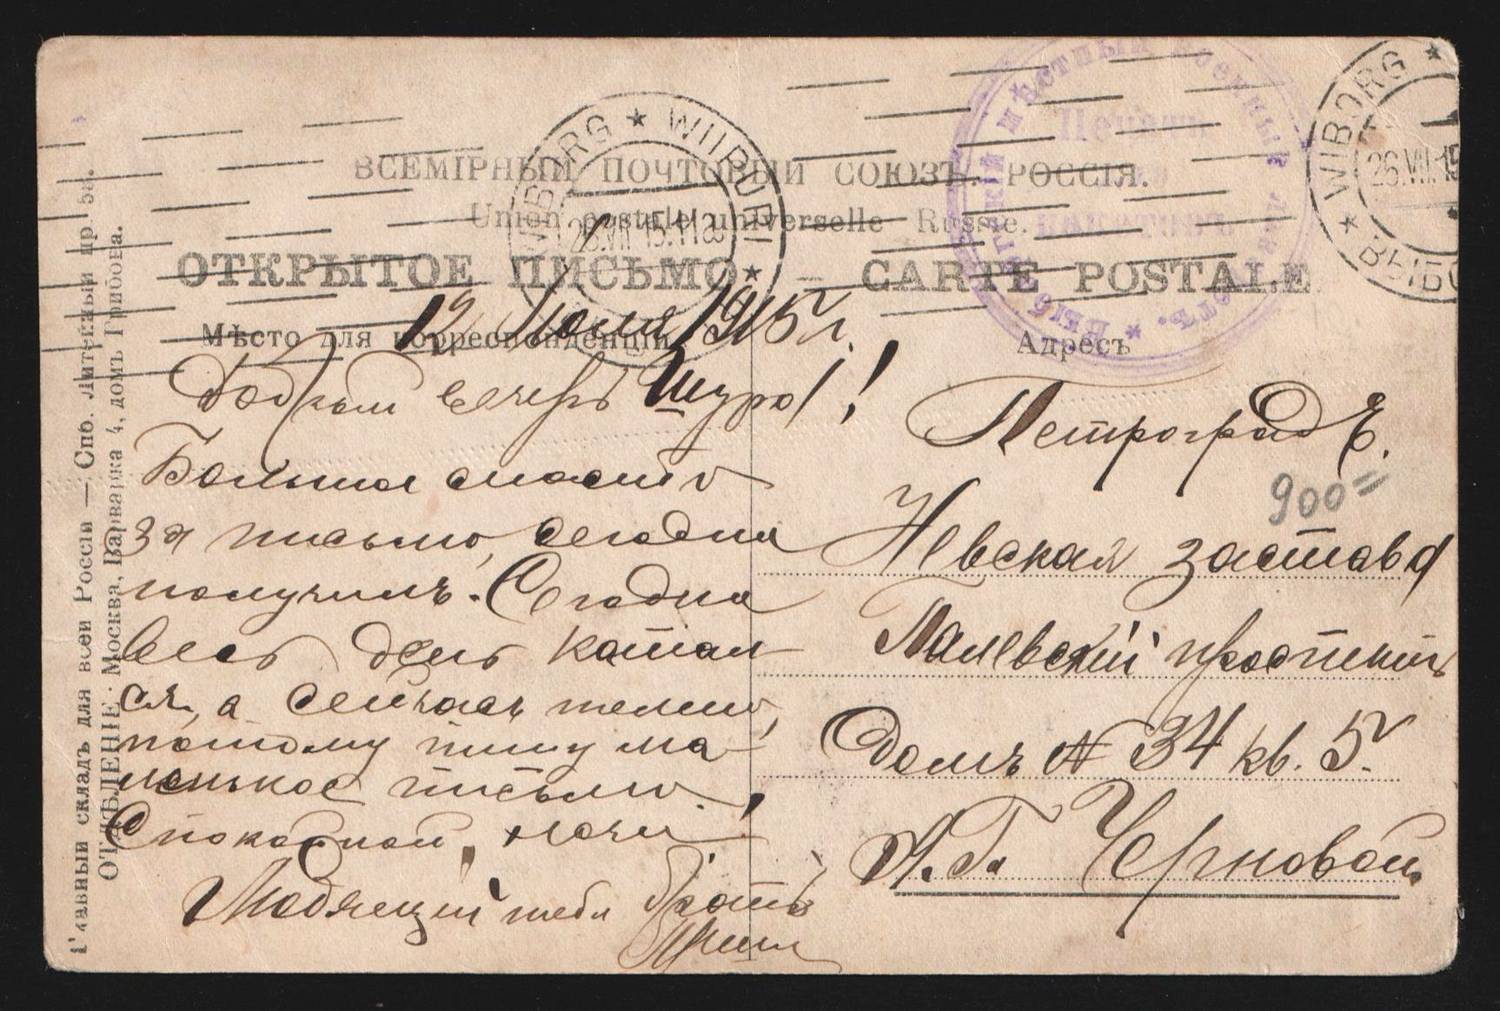 ВСЕМІРНЫЙ ПОЧТОВЫЙ СОЮЗЪ. РОССІЯ.
Union postale universelle Russie.
ОТКРЫТОЕ ПИСЬМО — CARTE POSTALE
Мѣсто для корреспонденціи
Адресъ
12 Июля 1915 г.
Добрый вечеръ Шура!
Большое спасибо
за письмо, сегодня
получилъ. Сегодня
весь день катал
ся, а сейчасъ темно,
потому пишу ма
ленькое письмо.
Спокойной ночи!
Любящій тебя братъ
Петроградъ.
Невская застава
Палевскій проспектъ
Домъ № 34 кв. 5.
А. Г. Черновой.
900=
Главный складъ для всей Россіи — Спб. Литейный пр. 58.
ОТДѢЛЕНІЕ: Москва, Варварка 4, домъ Грибова.
WIBORG * WIIPURI *
26.VII.15.11
WIBORG *
* ВЫБО
26.VII.15
Печать
пакетовъ
* Выборгскій мѣстный военный лазаретъ.